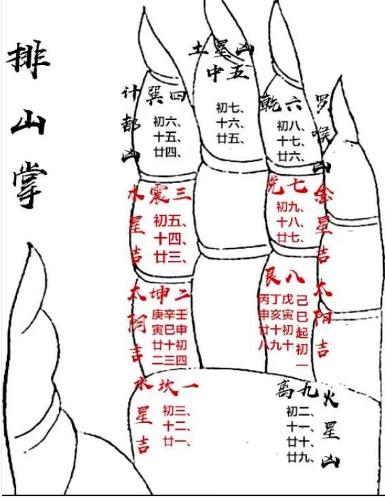 排山掌
土星凶
中五
初七、
十六、
廿五、
计都凶
巽四
初六、
十五、
廿四、
乾六
初八、
十七、
廿六、
罗喉凶
水星吉
震三
初五、
十四、
廿三、
兑七
初九、
十八、
廿七、
金星吉
太阴吉
坤二
壬申初四
辛巳十三
庚寅廿二
艮八
己巳起初一
戊寅初十
丁亥十九
丙申廿八
太阳吉
水星吉
坎一
初三、
十二、
廿一、
离九
初二、
十一、
廿九、
火星凶